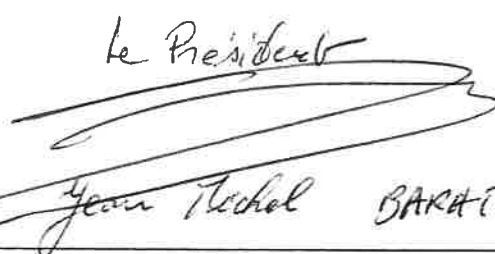 Le Président
Jean Michel BARAT